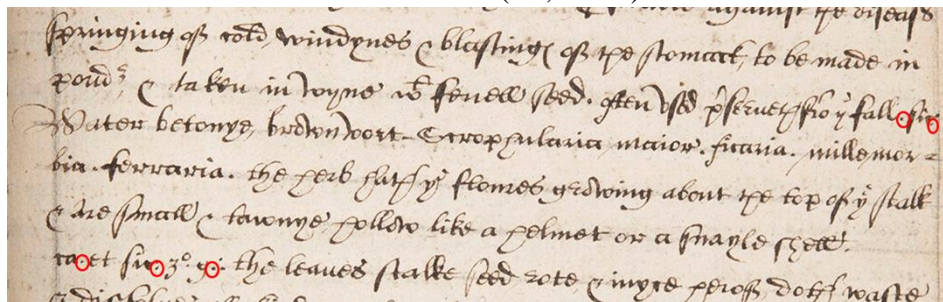 against the diseases
springing of cold, windynes & blasting of the stomack, to be made in
poudʳ & taken in wyne wᵗ fenell seed. often vsed pʳserueth fro yᵉ fall. sic
Water betonye, brownwort. Scrophularia maior. ficaria. millemor=
bia. ferraria. the herb hath yᵉ flowres growing about the top of yᵉ stalk
& are small & tawnye hollow like a helmet or a snayle shell.
ca. et sic. 3º. g. the leaues stalke seed rote & iuyce therof doth waste
& dissolue